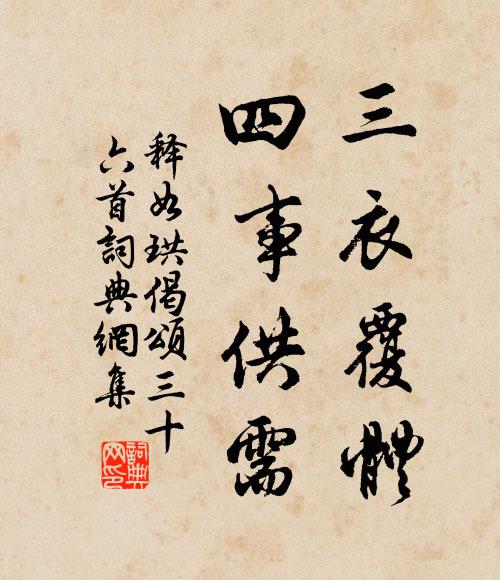 三衣覆體
四事供需
釋如珙偈頌三十
六首詞典網集
詞典
网印